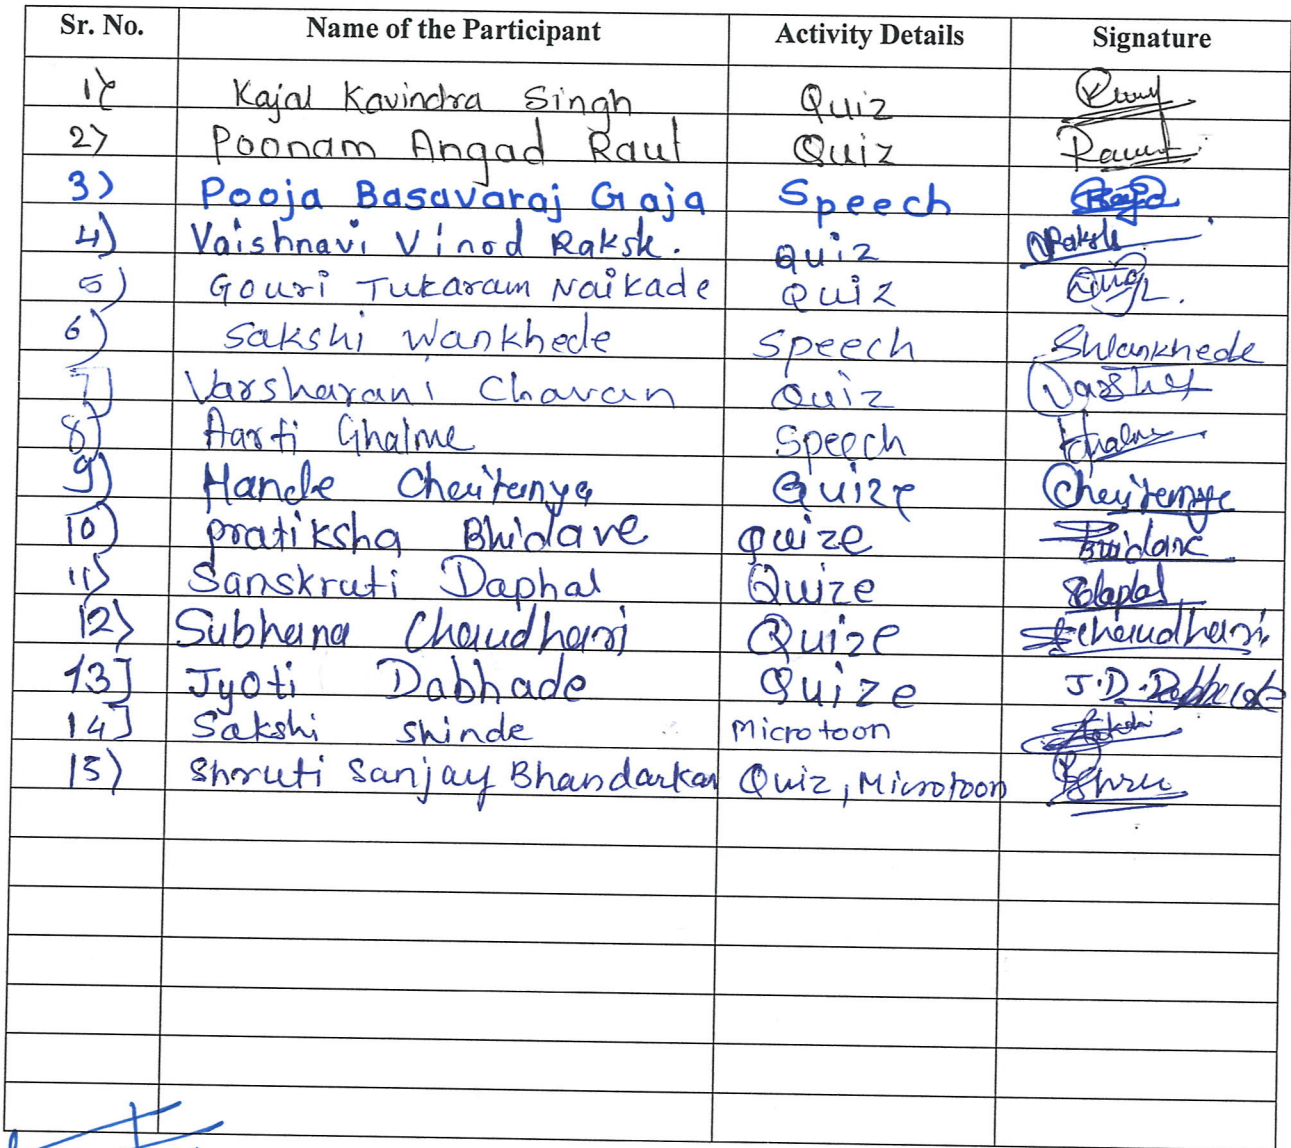 Sr. No. Name of the Participant Activity Details Signature
1) Kajal Kavindra Singh Quiz
2) Poonam Angad Raut Quiz Raut
3) Pooja Basavaraj Gaja Speech
4) Vaishnavi Vinod Raksk. Quiz Raksk
5) Gouri Tukaram Naikade Quiz
6) Sakshi Wankhede Speech SWankhede
7] Varsharani Chavan Quiz Varsha
8] Aarti Ghalme Speech Ghalme
9) Hande Cheitenya Quize Cheitenya
10) pratiksha Bhidave Quize Bhidave
11) Sanskruti Daphal Quize SDaphal
12) Subhana Chaudhari Quize SChaudhari
13] Jyoti Dabhade Quize J.D.Dabhade
14] Sakshi Shinde Microtoon Sakshi
15) Shruti Sanjay Bhandarkar Quiz, Microtoon Shru